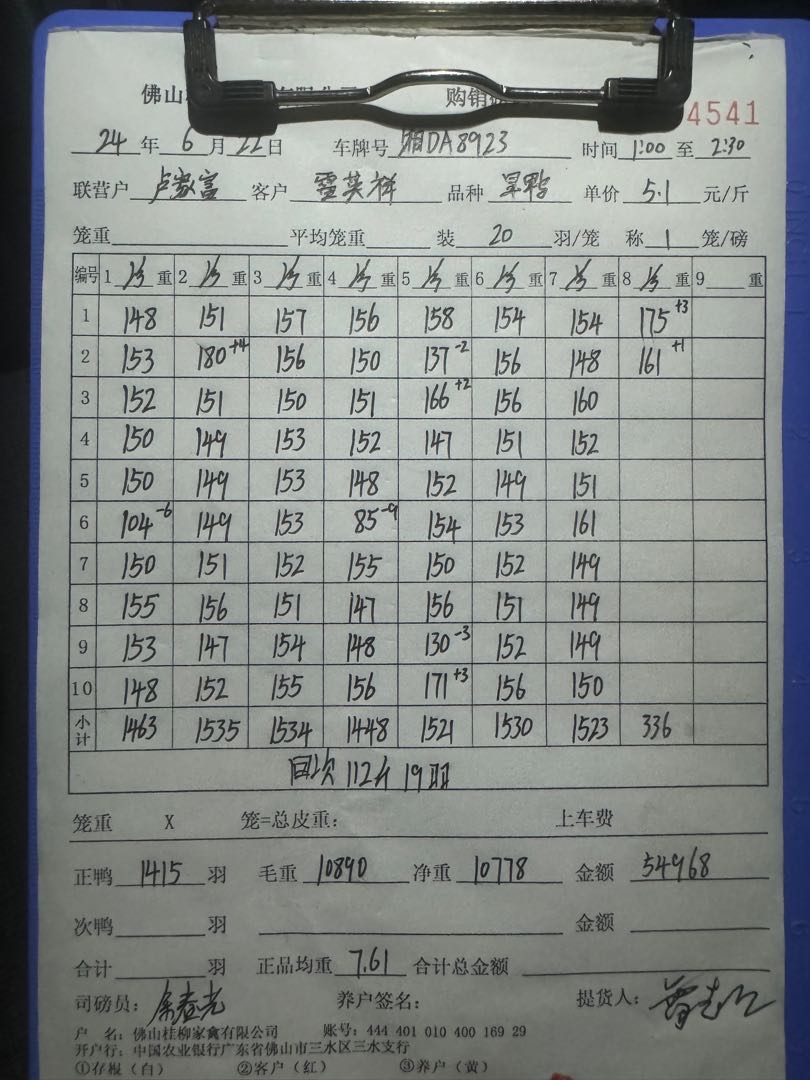 佛山 购销 4541
24 年 6 月 22 日 车牌号 湘DA8923 时间 1:00 至 2:30
联营户 卢家富 客户 雷英祥 品种 旱鸭 单价 5.1 元/斤
笼重 平均笼重 装 20 羽/笼 称 1 笼/磅
编号 1 净 重 2 净 重 3 净 重 4 净 重 5 净 重 6 净 重 7 净 重 8 净 重 9 重
1 148 151 157 156 158 154 154 175+3
2 153 180+4 156 150 137-2 156 148 161+1
3 152 151 150 151 166+2 156 160
4 150 149 153 152 147 151 152
5 150 149 153 148 152 149 151
6 104-6 149 153 85-9 154 153 161
7 150 151 152 155 150 152 149
8 155 156 151 147 156 151 149
9 153 147 154 148 130-3 152 149
10 148 152 155 156 171+3 156 150
小计 1463 1535 1534 1448 1521 1530 1523 336
回次 112斤 19羽
笼重 X 笼=总皮重: 上车费
正鸭 1415 羽 毛重 10890 净重 10778 金额 54968
次鸭 羽 金额
合计 羽 正品均重 7.61 合计总金额
司磅员: 余春光 养户签名: 提货人:
户 名: 佛山桂柳家禽有限公司 账号: 444 401 010 400 169 29
开户行: 中国农业银行广东省佛山市三水区三水支行
①存根(白) ②客户(红) ③养户(黄)